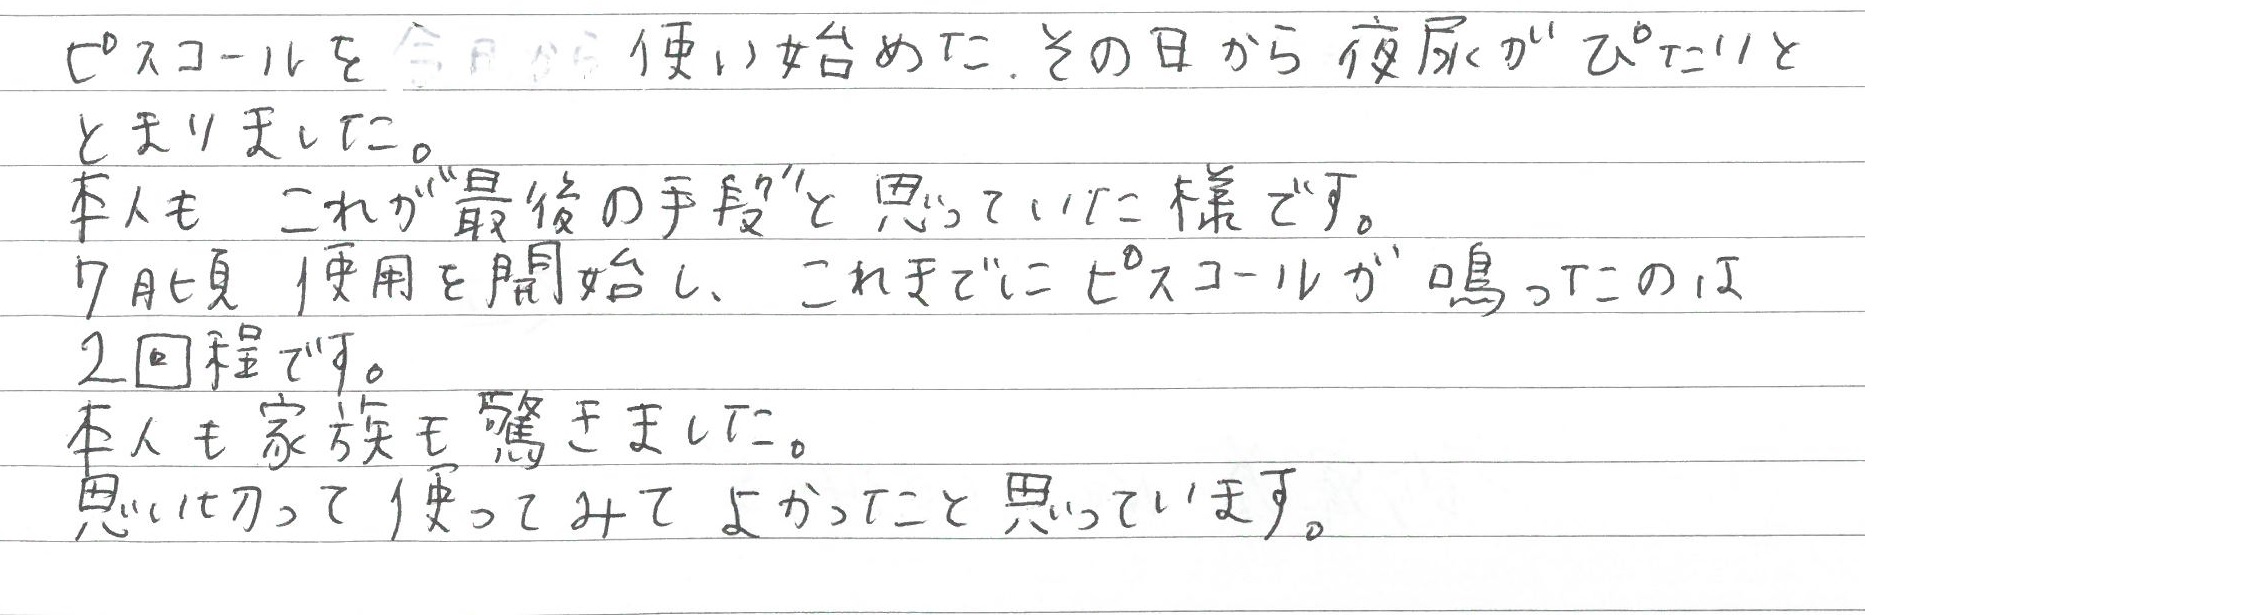 ピスコールを 使い始めた.その日から夜尿がぴたりと
とまりました。
本人も これが"最後の手段"と思っていた様です。
7月頃 使用を開始し、 これまでにピスコールが鳴ったのは
2回程です。
本人も家族も驚きました。
思い切って使ってみてよかったと思っています。